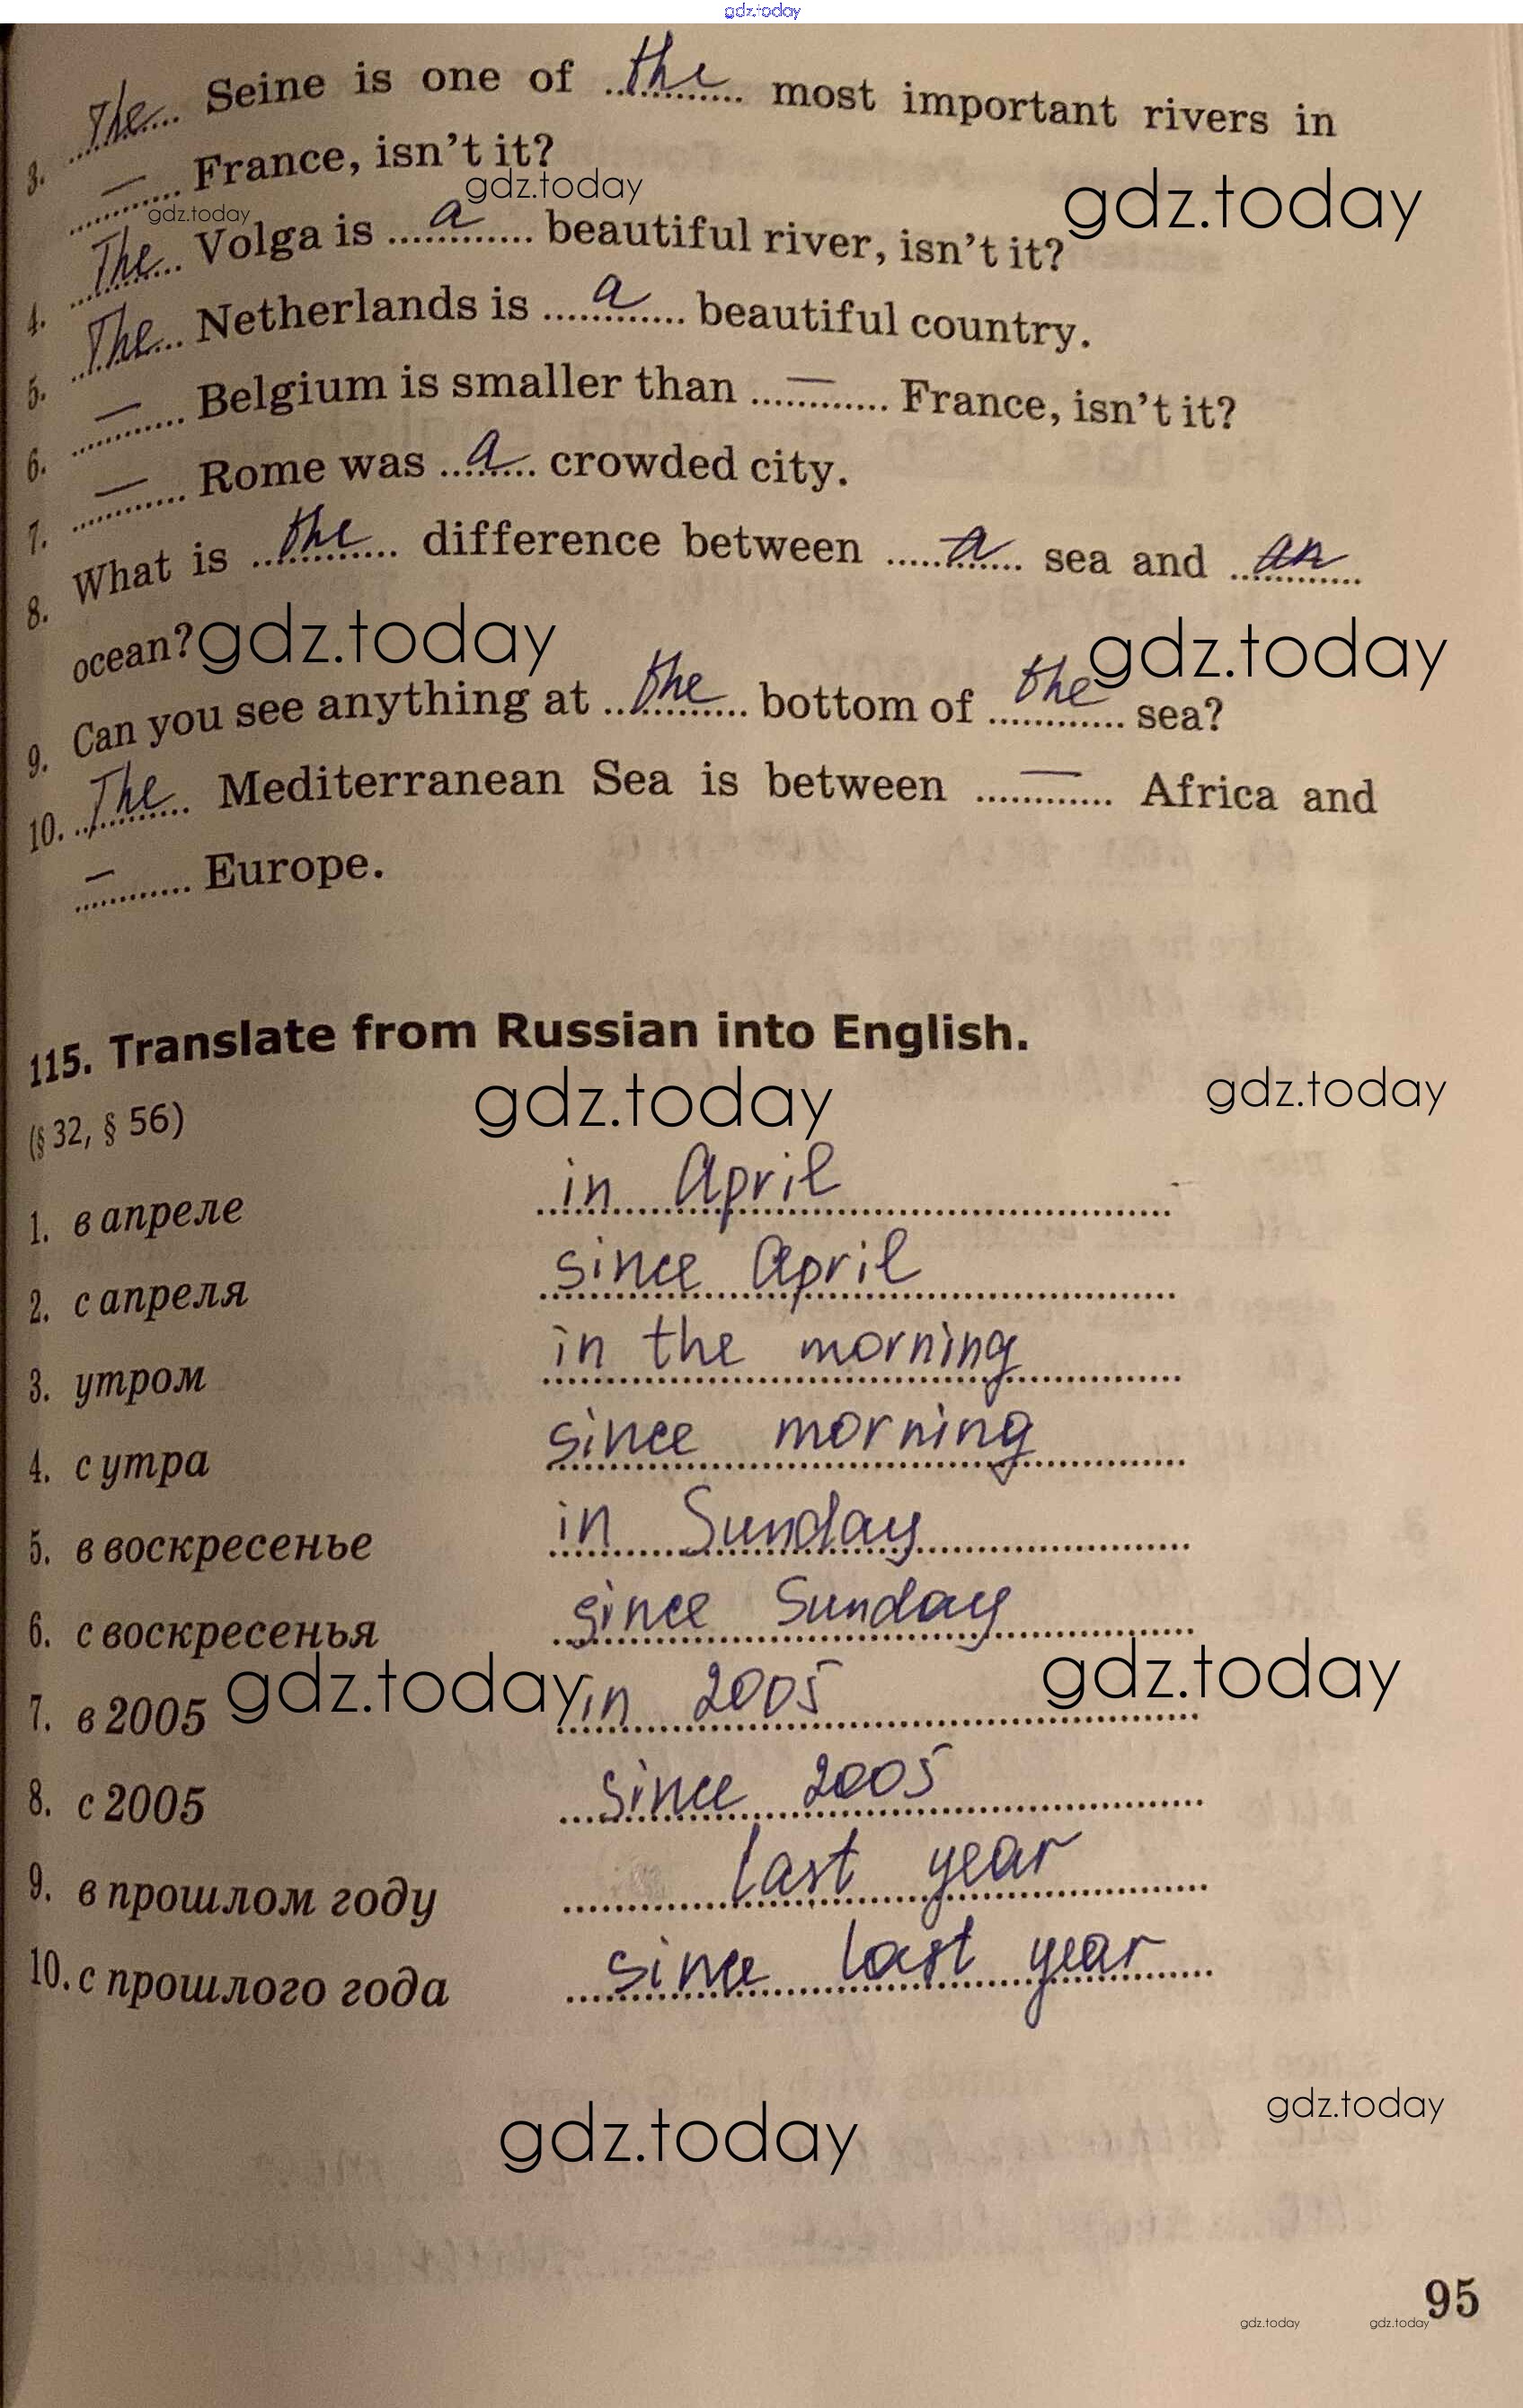 gdz.today
3. The Seine is one of the most important rivers in
— France, isn't it?
gdz.today
gdz.today
gdz.today
4. The Volga is a beautiful river, isn't it?
5. The Netherlands is a beautiful country.
6. — Belgium is smaller than — France, isn't it?
7. — Rome was a crowded city.
8. What is the difference between a sea and an
ocean?
gdz.today
gdz.today
9. Can you see anything at the bottom of the sea?
10. The Mediterranean Sea is between — Africa and
— Europe.
115. Translate from Russian into English.
gdz.today
gdz.today
(§ 32, § 56)
1. в апреле in April
2. с апреля since April
3. утром in the morning
4. с утра since morning
5. в воскресенье in Sunday
6. с воскресенья since Sunday
gdz.today
gdz.today
7. в 2005 in 2005
8. с 2005 since 2005
9. в прошлом году last year
10. с прошлого года since last year
gdz.today
gdz.today
95
gdz.today
gdz.today